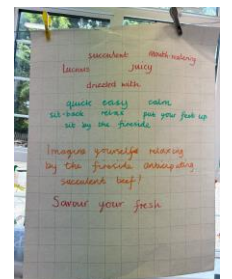 succulent mouth-watery
luscious juicy
drizzled with
quick easy calm
sit-back relax put your feet up
sit by the fireside
Imagine yourself relaxing
by the fireside anticipating
succulent beef!
Savour your fresh